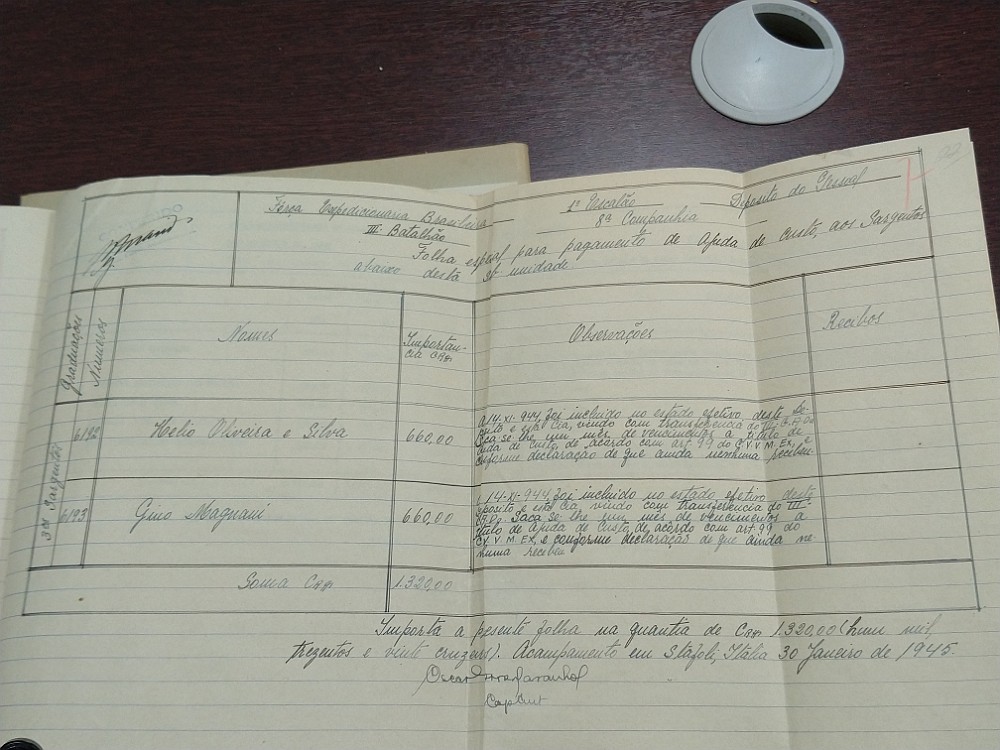 Força Expedicionaria Brasileira 1º Escalão Deposito do Pessoal
III Batalhão 8ª Companhia
Folha especial para pagamento de Ajuda de custo, aos Sargentos
abaixo desta unidade
Graduação Numeros Nomes Importancia Cr$ Observações Recibos
3os Sargentos
6192 Helio Oliveira e Silva 660,00
A 14-XI-944, foi incluido no estado efetivo deste De-
posito e esta Cia, vindo com transferencia do
Saca-se-lhe um mes de vencimentos a titulo de
ajuda de custo, de acordo com art. 99 do C.V.V.M.EX, e
conforme declaração de que ainda nenhuma recebeu
6193 Gino Magnani 660,00
A 14-XI-944, foi incluido no estado efetivo deste
Deposito e esta Cia, vindo com transferencia do III
Saca-se-lhe um mes de vencimentos a
titulo de ajuda de custo, de acordo com art. 99 do
C.V.V.M.EX, e conforme declaração de que ainda ne-
nhuma recebeu
Soma Cr$ 1.320,00
Importa a pesente folha na quantia de Cr$ 1.320,00 (hum mil,
trezentos e vinte cruzeiros). Acampamento em Stafoli, Italia 30 Janeiro de 1945.
Oscar
Cap